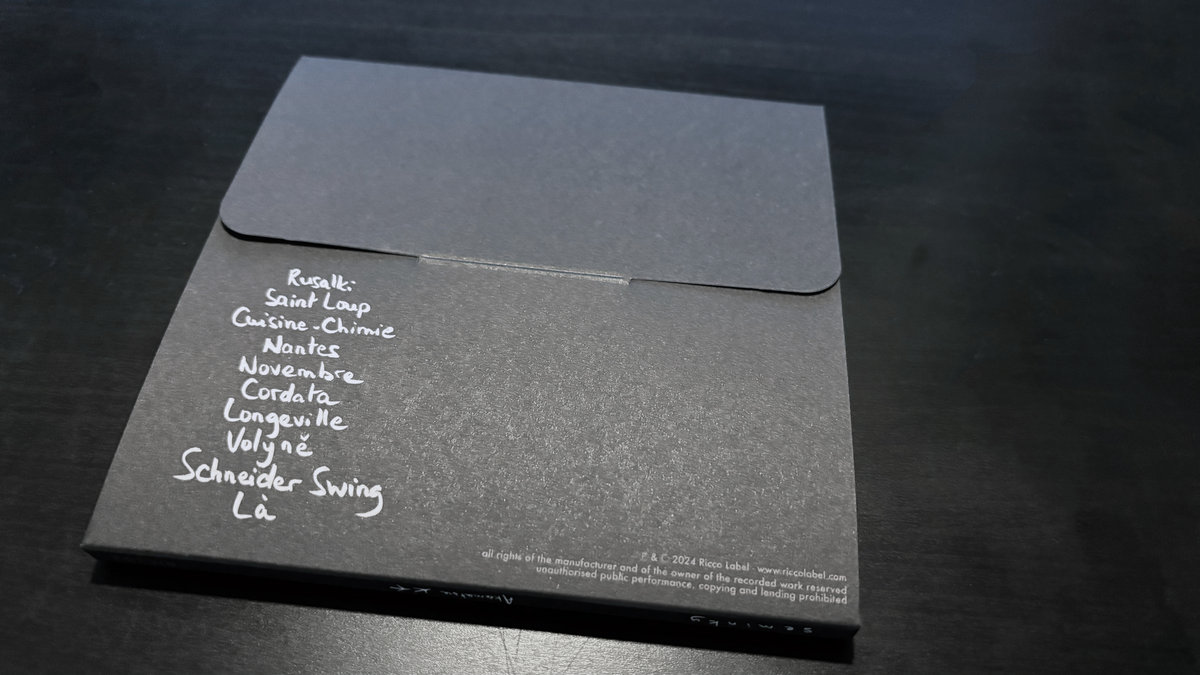 Rusalki
Saint Loup
Cuisine-Chimie
Nantes
Novembre
Cordata
Longeville
Volyně
Schneider Swing
Là
℗ & © 2024 Ricco Label www.riccolabel.com
all rights of the manufacturer and of the owner of the recorded work reserved
unauthorised public performance, copying and lending prohibited
seminky